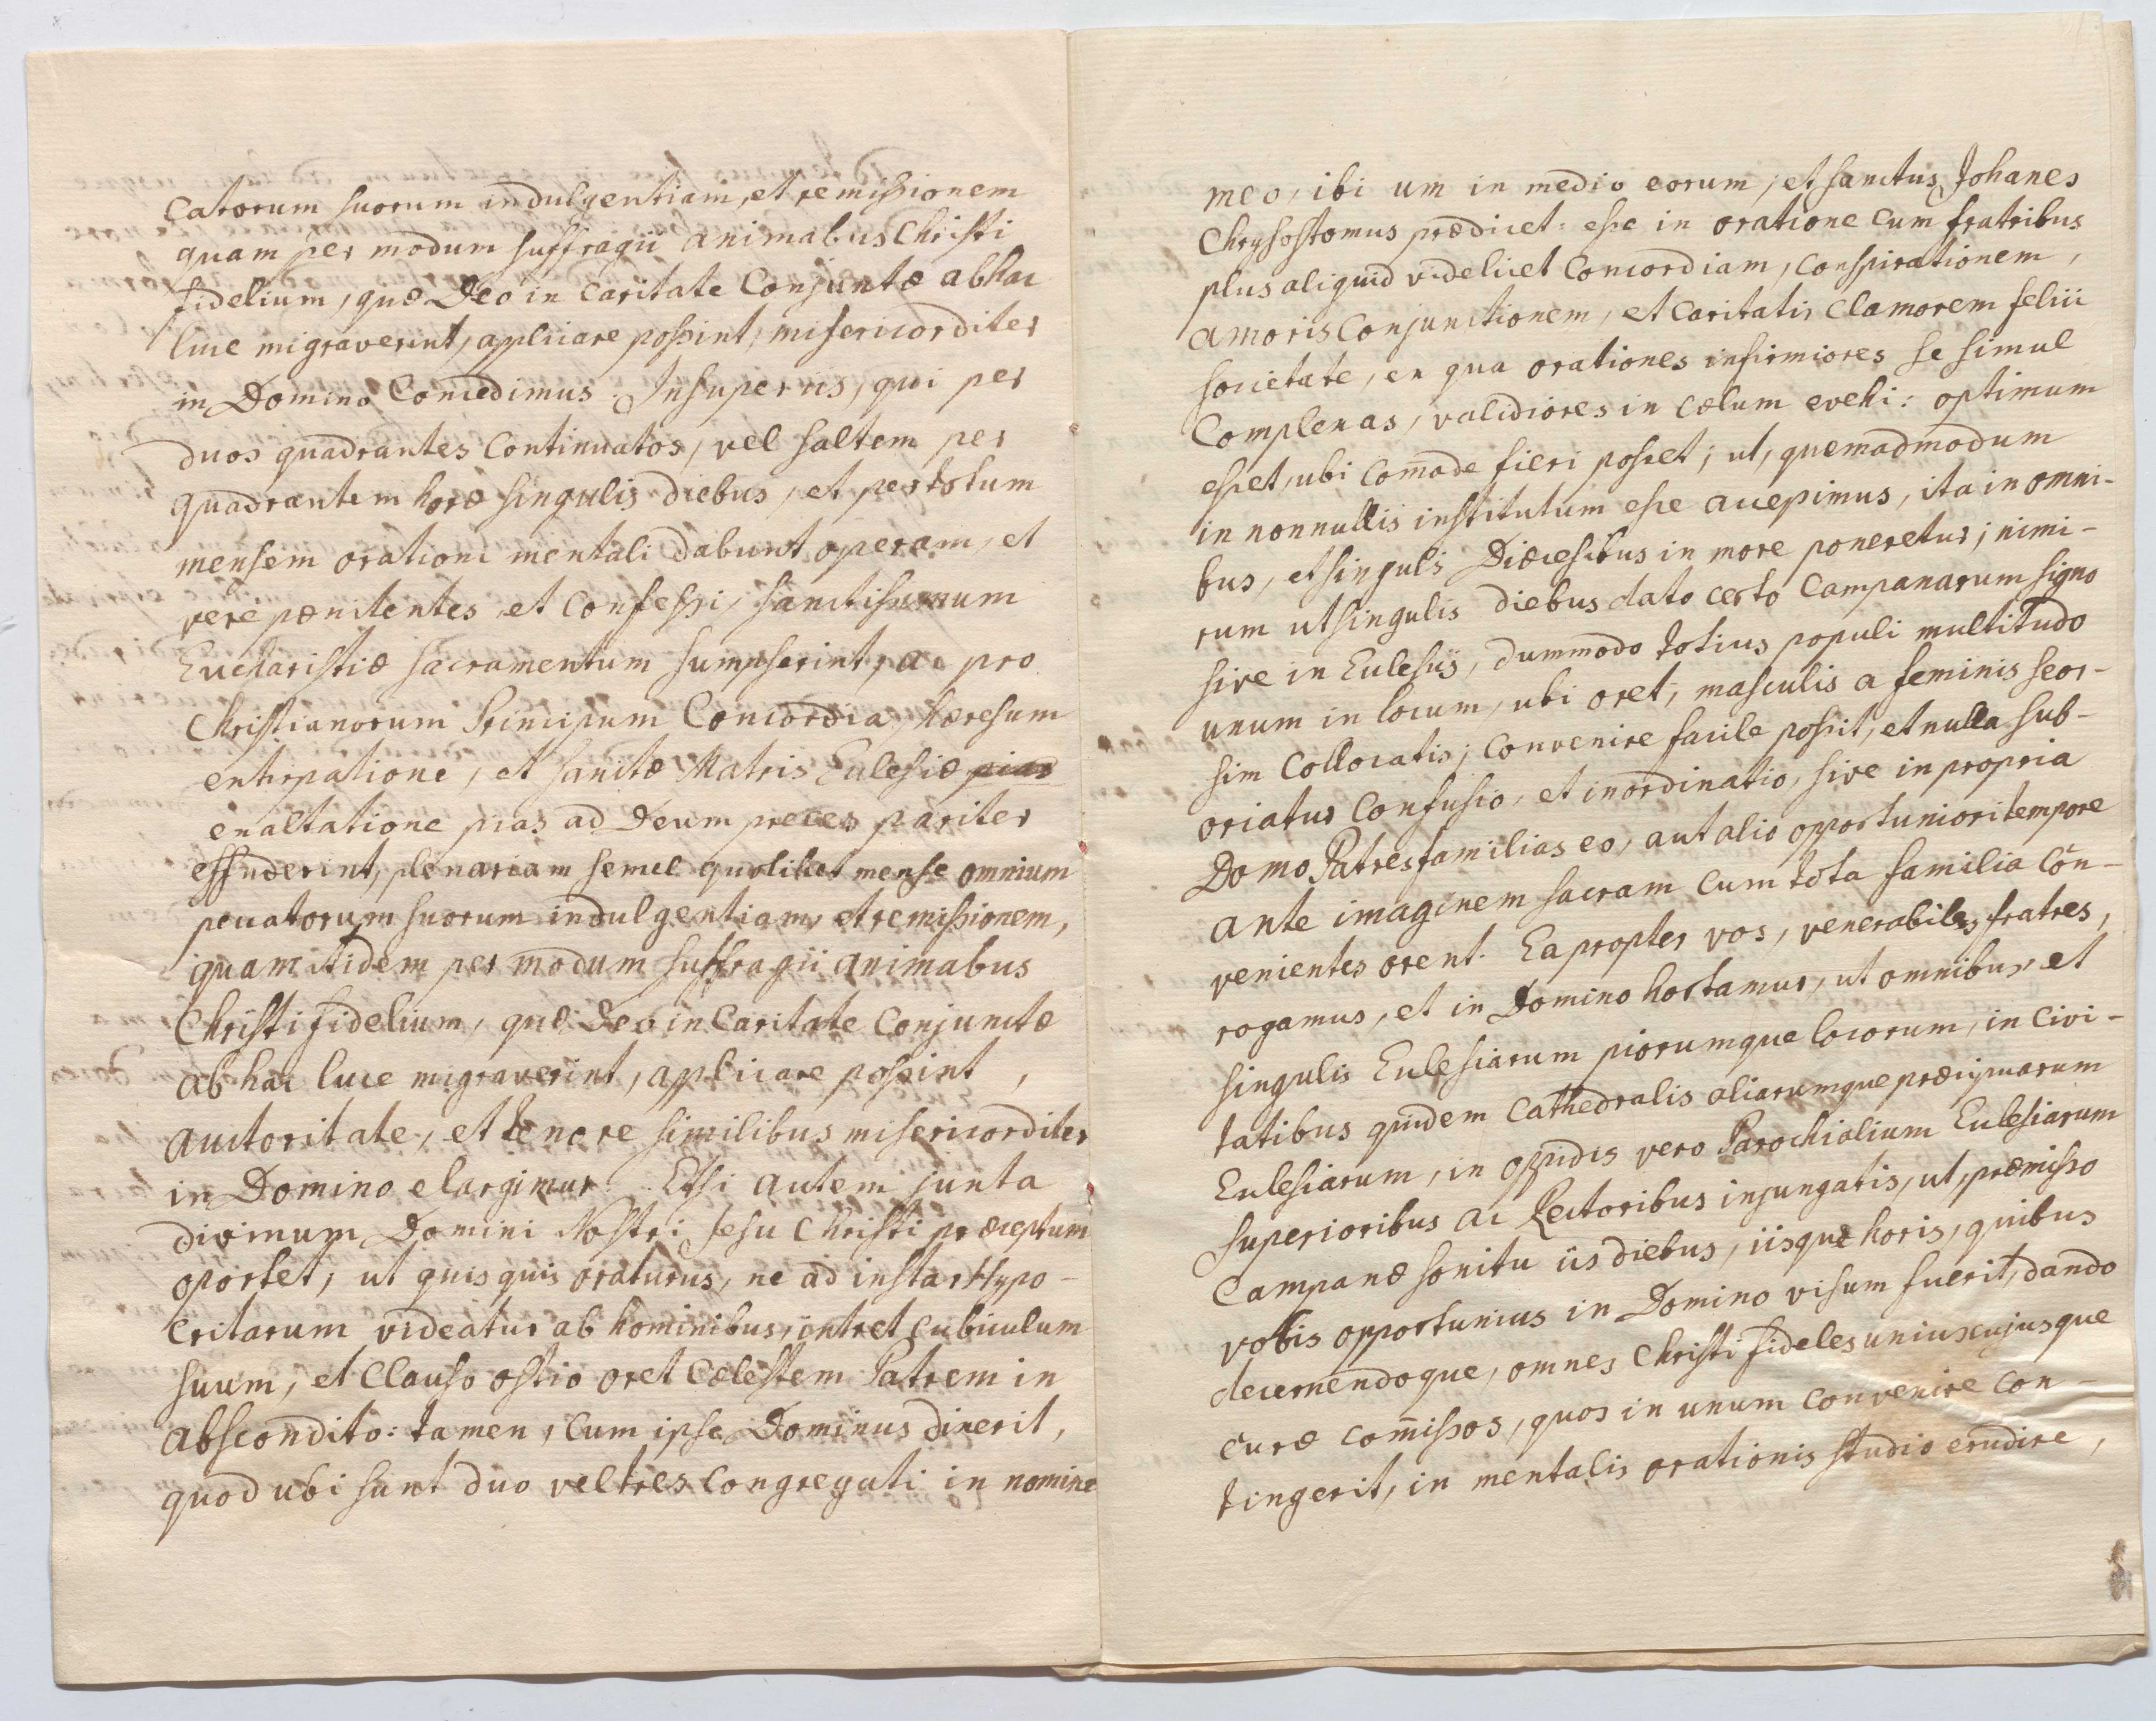 catorum suorum indulgentiam, et remissionem
quam per modum suffragii animabus Christi
fidelium, quæ Deo in caritate conjunctæ ab hac
luce migraverint, applicare possint, misericorditer
in Domino concedimus. Insuper iis, qui per
duos quadrantes continuatos, vel saltem per
quadrantem horæ singulis diebus, et per totum
mensem orationi mentali dabunt operam, et
vere pænitentes et confessi, sanctissimum
Eucharistiæ sacramentum sumpserint, ac pro
Christianorum Principum Concordia, hæresum
extirpatione, et sanctæ Matris Ecclesiæ pias
exaltatione pias ad Deum preces pariter
effuderint, plenariam semel quolibet mense omnium
peccatorum suorum indulgentiam, et remissionem,
quam itidem per modum suffragii animabus
Christi fidelium, quæ Deo in Caritate conjunctæ
ab hac luce migraverint, applicare possint,
auctoritate, et tenore similibus misericorditer
in Domino elargimur. Etsi autem juxta
divinum Domini Nostri Jesu Christi præceptum
oportet, ut quisquis oraturus, ne ad instar Hypo-
critarum videatur ab hominibus, intret cubiculum
suum, et clauso ostio oret Cælestem Patrem in
abscondito: tamen, cum ipse Dominus dixerit,
quod ubi sunt duo vel tres congregati in nomine
meo, ibi um in medio eorum, et sanctus Johanes
Chrysostomus prædicet: esse in oratione cum fratribus
plus aliquid videlicet Concordiam, conspirationem,
amoris conjunctionem, et caritatis clamorem felici
societate, ex qua orationes infirmiores se simul
complexas, validiores in cælum evehi: optimum
esset, ubi com̄ode fieri posset, ut, quemadmodum
in nonnullis institutum esse accepimus, ita in omni-
bus, et singulis Diæcesibus in more poneretur; nimi-
rum ut singulis diebus dato certo campanarum signo
sive in Ecclesiis, dummodo totius populi multitudo
unum in locum, ubi oret, masculis a feminis seor-
sim collocatis, convenire facile possit, et nulla sub-
oriatur confusio, et inordinatio, sive in propria
Domo Patresfamilias eo, aut alio opportuniori tempore
ante imaginem sacram cum tota familia con-
venientes orent. Eapropter vos, venerabiles fratres,
rogamus, et in Domino hortamur, ut omnibus et
singulis Ecclesiarum piorumque locorum, in civi-
tatibus quidem cathedralis aliarumque præcipuarum
Ecclesiarum, in oppidis vero Parochialium Ecclesiarum
superioribus ac Rectoribus injungatis, ut, præmisso
campanæ sonitu iis diebus, iisque horis, quibus
vobis opportunius in Domino visum fuerit, dando
decernendoque, omnes Christi fideles uniuscujusque
curæ com̄issos, quos in unum convenire con-
tingerit, in mentalis orationis studio erudire,